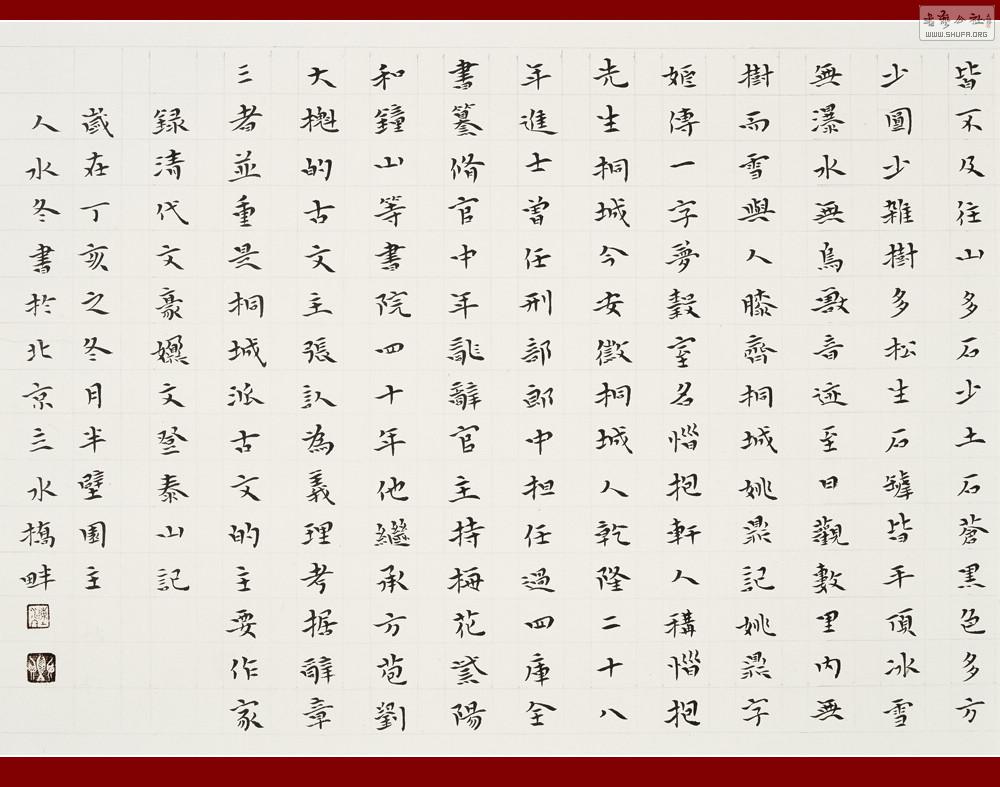 皆不及往山多石少土石蒼黑色多方
少圖少雜樹多松生石罅皆平頂冰雪
無瀑水無鳥獸音迹至日觀數里內無
樹而雪與人膝齊桐城姚鼐記姚鼐字
姬傳一字夢穀室名惜抱軒人稱惜抱
先生桐城今安徽桐城人乾隆二十八
年進士曾任刑部郎中担任過四庫全
書纂脩官中年辭官主持梅花紫陽
和鐘山等書院四十年他繼承方苞劉
大櫆的古文主張認為義理考据辭章
三者並重是桐城派古文的主要作家
録清代文豪文登泰山記
歲在丁亥之冬月半壁園主
人水冬書於北京立水橋畔
WWW.SHUFA.ORG